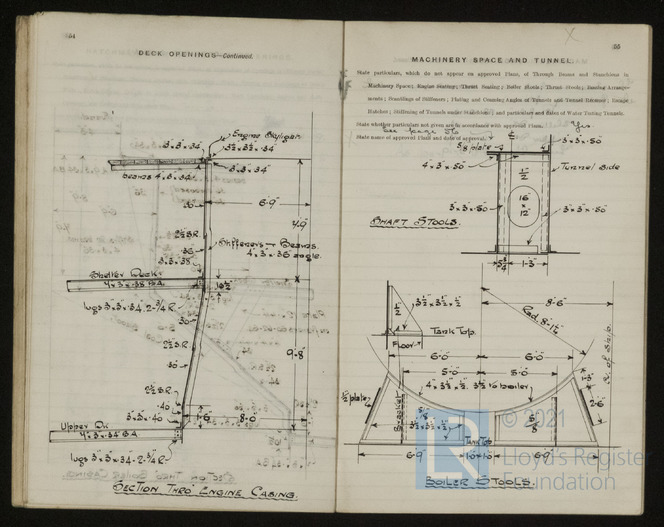 154
DECK OPENINGS—Continued.
Engine Skylight
3"×3"×·34"
3½"×3½"×·34"
3"×3"×·34"
Beams 4"×3"×·34"
6'-9"
2½ S.R.
Stiffeners & Beams.
4"×3"×·36 angle.
3"×3"×·38
7'-9"
Shelter Deck
4"×3"×·38 B.A.
10½"
Lugs 3"×3"×·34". 2-¾" R.
·30
2½ S.R.
·30
9'-8"
2½ S.R.
·40
3"×3"×·40
8'-0"
Upper Dk
4"×3"×·34 B.A.
Lugs 3"×3"×·34-2-¾" R.
SECTION THRO' ENGINE CASING.
55
MACHINERY SPACE AND TUNNEL.
State particulars, which do not appear on approved Plans, of Through Beams and Stanchions in
Machinery Space; Engine Seating; Thrust Seating; Boiler Stools; Thrust Stools; Bossing Arrange-
ments; Scantlings of Stiffeners; Plating and Coaming Angles of Tunnels and Tunnel Recesses; Escape
Hatches; Stiffening of Tunnels under Hatchways; and particulars and dates of Water Testing Tunnels.
State whether particulars not given are in accordance with approved Plans. Yes.
State name of approved Plans and date of approval. See page 56
5/8 plate
3"×3"×·50
4"×3"×·50"
Tunnel Side
½"
16" × 12"
3"×3"×·50
3"×3"×·50
SHAFT STOOLS.
5¾"
1'-3"
½"
3½"×3½"×½"
Tank Top.
Floor
8'-6"
Rad. 8'-1½"
6'-0"
6'-0"
5'-0"
5'-0"
4"×3½"×½" 3½" to boiler
1'-3"
½" plate
Bracket
3½"×3½"×½"
5/8
5/8
2'-6"
Tank Top
6'-9"
1'-0"
1'-0"
6'-9"
BOILER STOOLS.
© 2021
LR
Lloyd's Register
Foundation